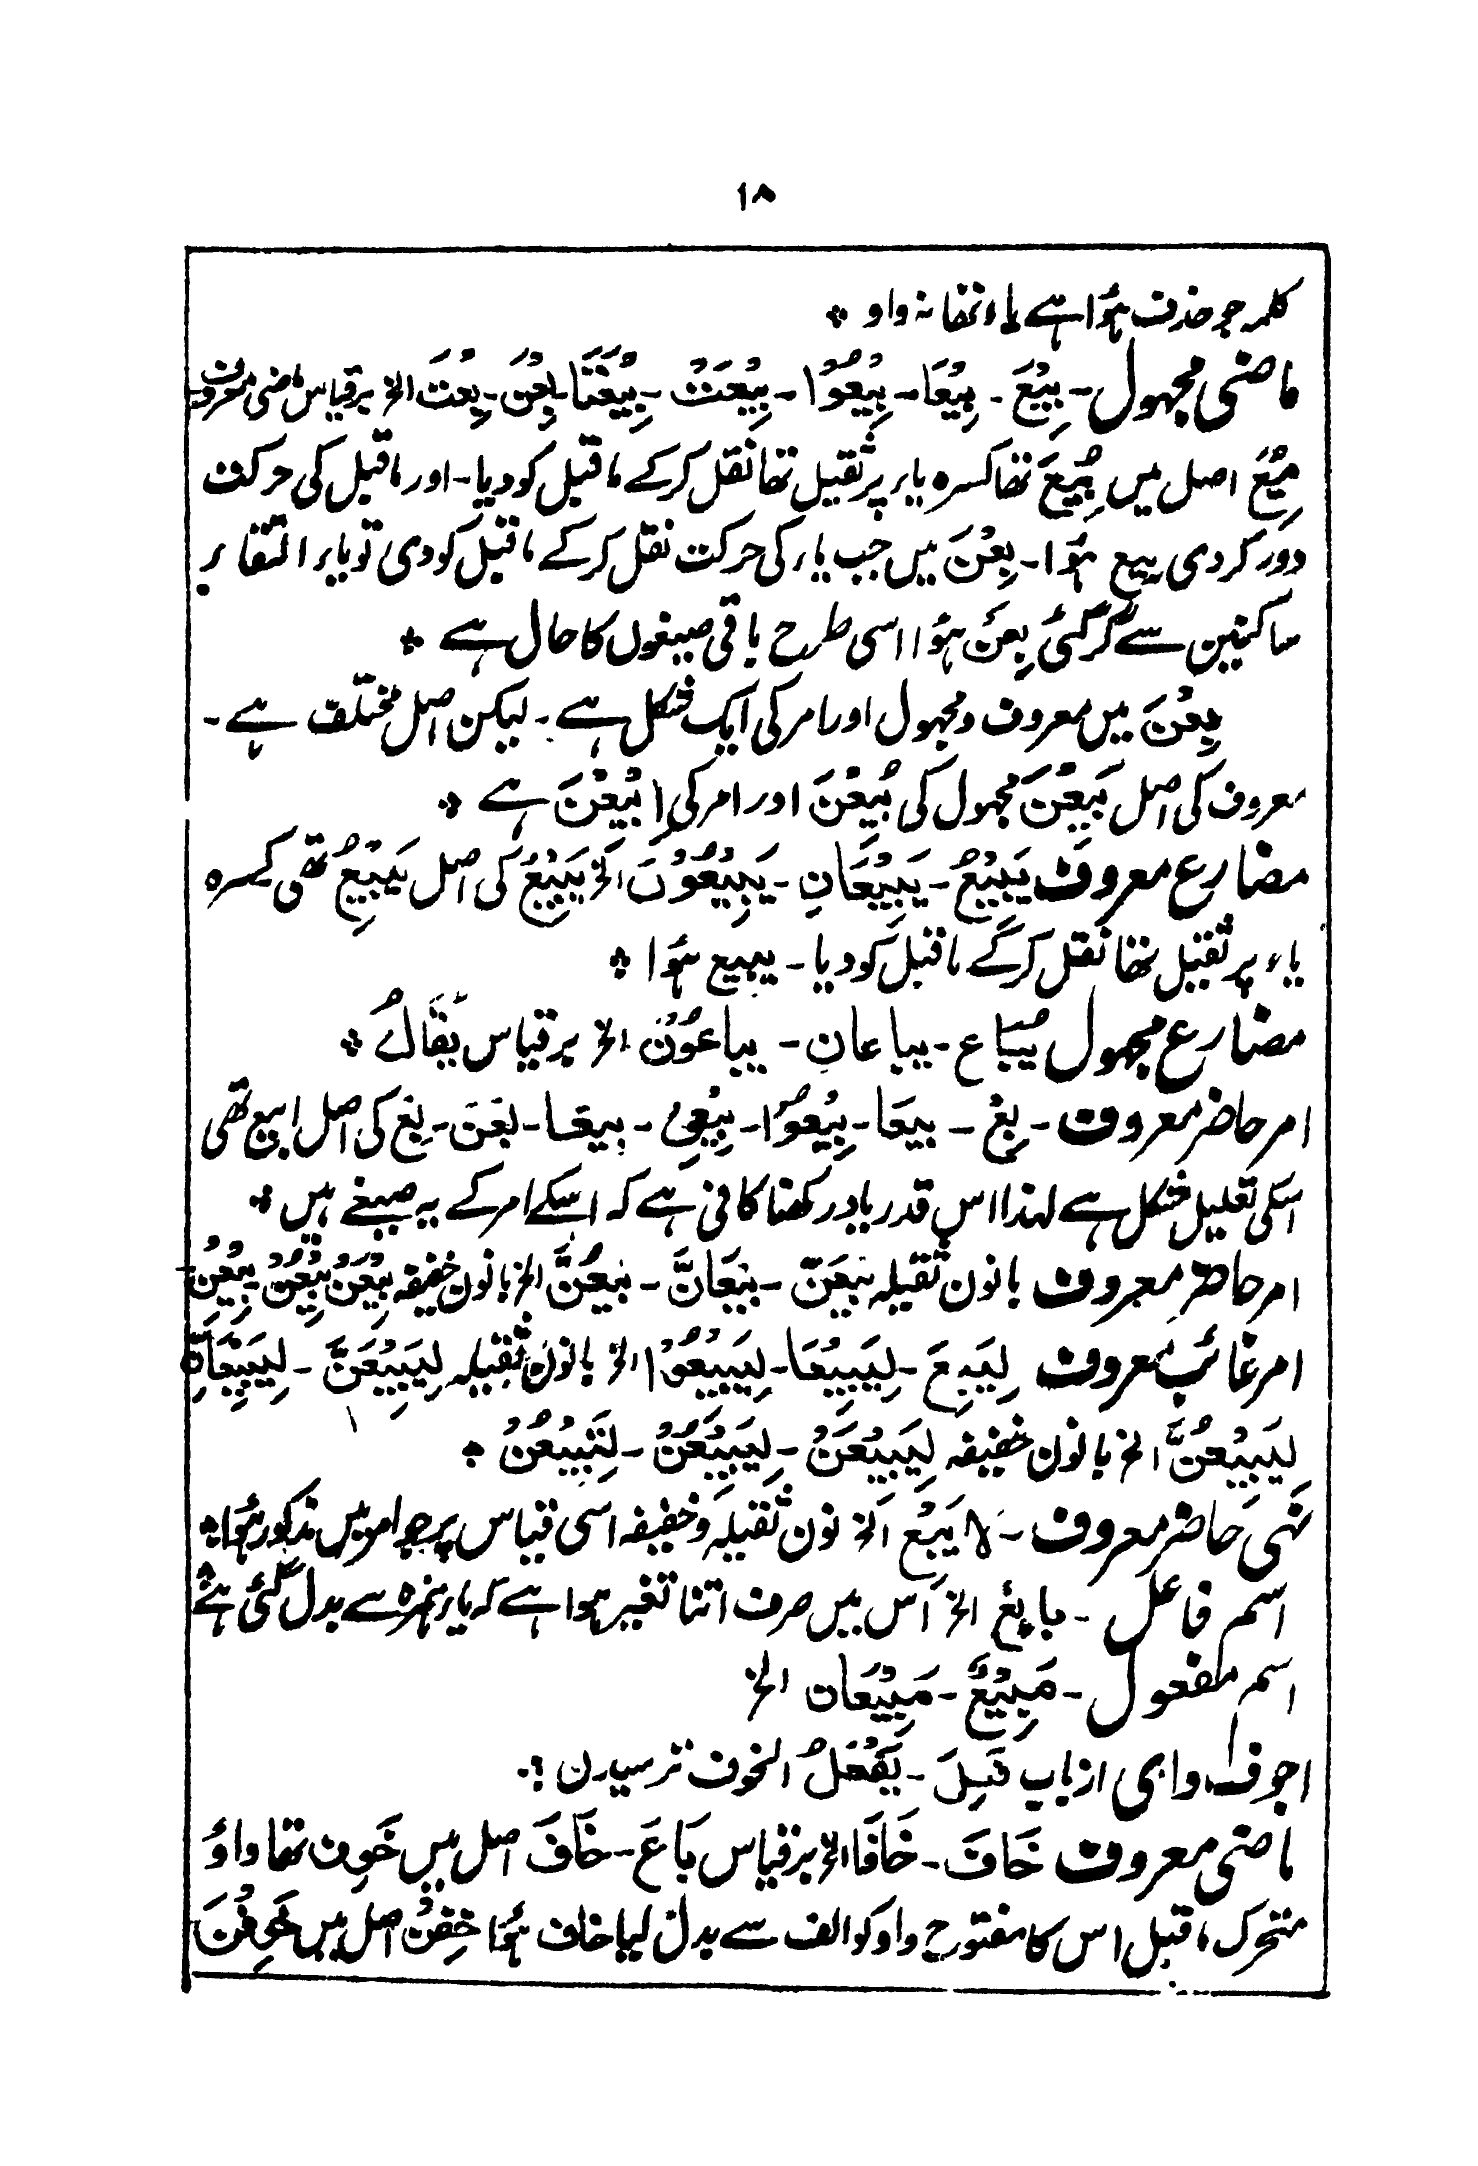 ۱۸
کلمہ جو حذف ہؤا ہے یاء تھا نہ واو
ماضی مجہول۔ بِیْعَ۔ بِیْعَا۔ بِیْعُوْا۔ بِیْعَتْ۔ بِیْعَتَا۔ بِعْنَ۔ بِعْتَ الخ بر قیاس ماضی معروف
بِیْعَ اصل میں بُیِعَ تھا کسرہ یاء پر ثقیل تھا نقل کرکے ماقبل کو دیا۔ اور ماقبل کی حرکت
دور کردی بیع ہؤا۔ بِعْنَ میں جب یاء کی حرکت نقل کرکے ماقبل کو دی تو یاء التقاء
ساکنین سے گر گئی بِعْنَ ہؤا اسی طرح باقی صیغوں کا حال ہے
بِعْنَ میں معروف و مجہول اور امر کی ایک شکل ہے۔ لیکن اصل مختلف ہے۔
معروف کی اصل بَیَعْنَ مجہول کی بُیِعْنَ اور امر کی اِبْیِعْنَ ہے
مضارع معروف یَبِیْعُ۔ یَبِیْعَانِ۔ یَبِیْعُوْنَ الخ یَبِیْعُ کی اصل یَبْیِعُ تھی کسرہ
یاء پر ثقیل تھا نقل کرکے ماقبل کو دیا۔ یبیع ہؤا
مضارع مجہول یُبَاع۔ یباعان۔ یباعُوْن الخ بر قیاس یُقَالُ
امر حاضر معروف۔ بِعْ۔ بیعَا۔ بِیْعُوْا۔ بِیْعِیْ۔ بیعَا۔ بِعْنَ۔ بِعْ کی اصل ابیع تھی
اسکی تعلیل مشکل ہے لہذا اس قدر یاد رکھنا کافی ہے کہ اسکے امر کے یہ صیغے ہیں
امر حاضر معروف بانون ثقیلہ بیعَنَّ۔ بیعَانَّ۔ بیعُنَّ الخ بانون خفیفہ بِیْعَنْ بِیْعُنْ بِیْعِنْ
امر غائب معروف لِیَبِعْ۔ لِیَبِیْعَا۔ لِیَبِیْعُوْا الخ بانون ثقیلہ لِیَبِیْعَنَّ۔ لِیَبِیْعَانِّ
لِیَبِیْعُنَّ الخ بانون خفیفہ لِیَبِیْعَنْ۔ لِیَبِیْعُنْ۔ لِتَبِیْعَنْ
نہی حاضر معروف۔ لا تَبِعْ الخ نون ثقیلہ و خفیفہ اسی قیاس پر جو امر میں مذکور ہؤا
اسم فاعل۔ بایعٌ الخ اس میں صرف اتنا تغیر ہوا ہے کہ یاء ہمزہ سے بدل گئی ہے
اسم مفعول۔ مَبِیْعٌ۔ مَبِیْعَان الخ
اجوف واوی از باب فَعِلَ۔ یَفْعَلُ الخوف ترسیدن
ماضی معروف خَافَ۔ خَافَا الخ بر قیاس بَاعَ۔ خَافَ اصل میں خَوِفَ تھا واؤ
متحرک ماقبل اس کا مفتوح واو کو الف سے بدل لیا خاف ہؤا خِفْنَ اصل میں خَوِفْنَ